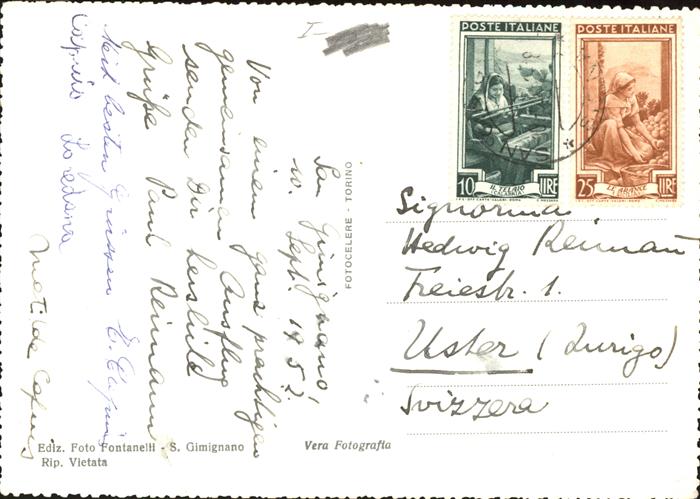 I
San Gimignano,
10. Sept. 1952.
Von einem ganz prächtigen
gemeinsamen Ausflug
senden Dir herzliche
Grüße Paul Reimann
Mit besten Grüssen E.
Loredana
Matilde
POSTE ITALIANE
10 LIRE
IL TELAIO
(CALABRIA)
POSTE ITALIANE
25 LIRE
LE ARANCE
(SICILIA)
Signorina
Hedwig Reimann
Freiestr. 1.
Uster (Zurigo)
Svizzera
FOTOCELERE - TORINO
Ediz. Foto Fontanelli - S. Gimignano
Rip. Vietata
Vera Fotografia